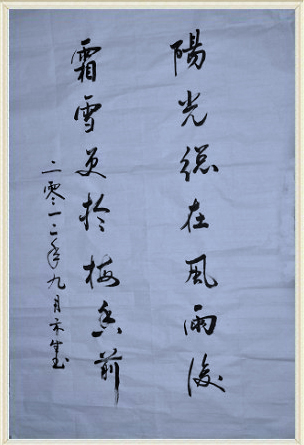 陽光總在風雨後
霜雪更於梅香前
二零一二年九月